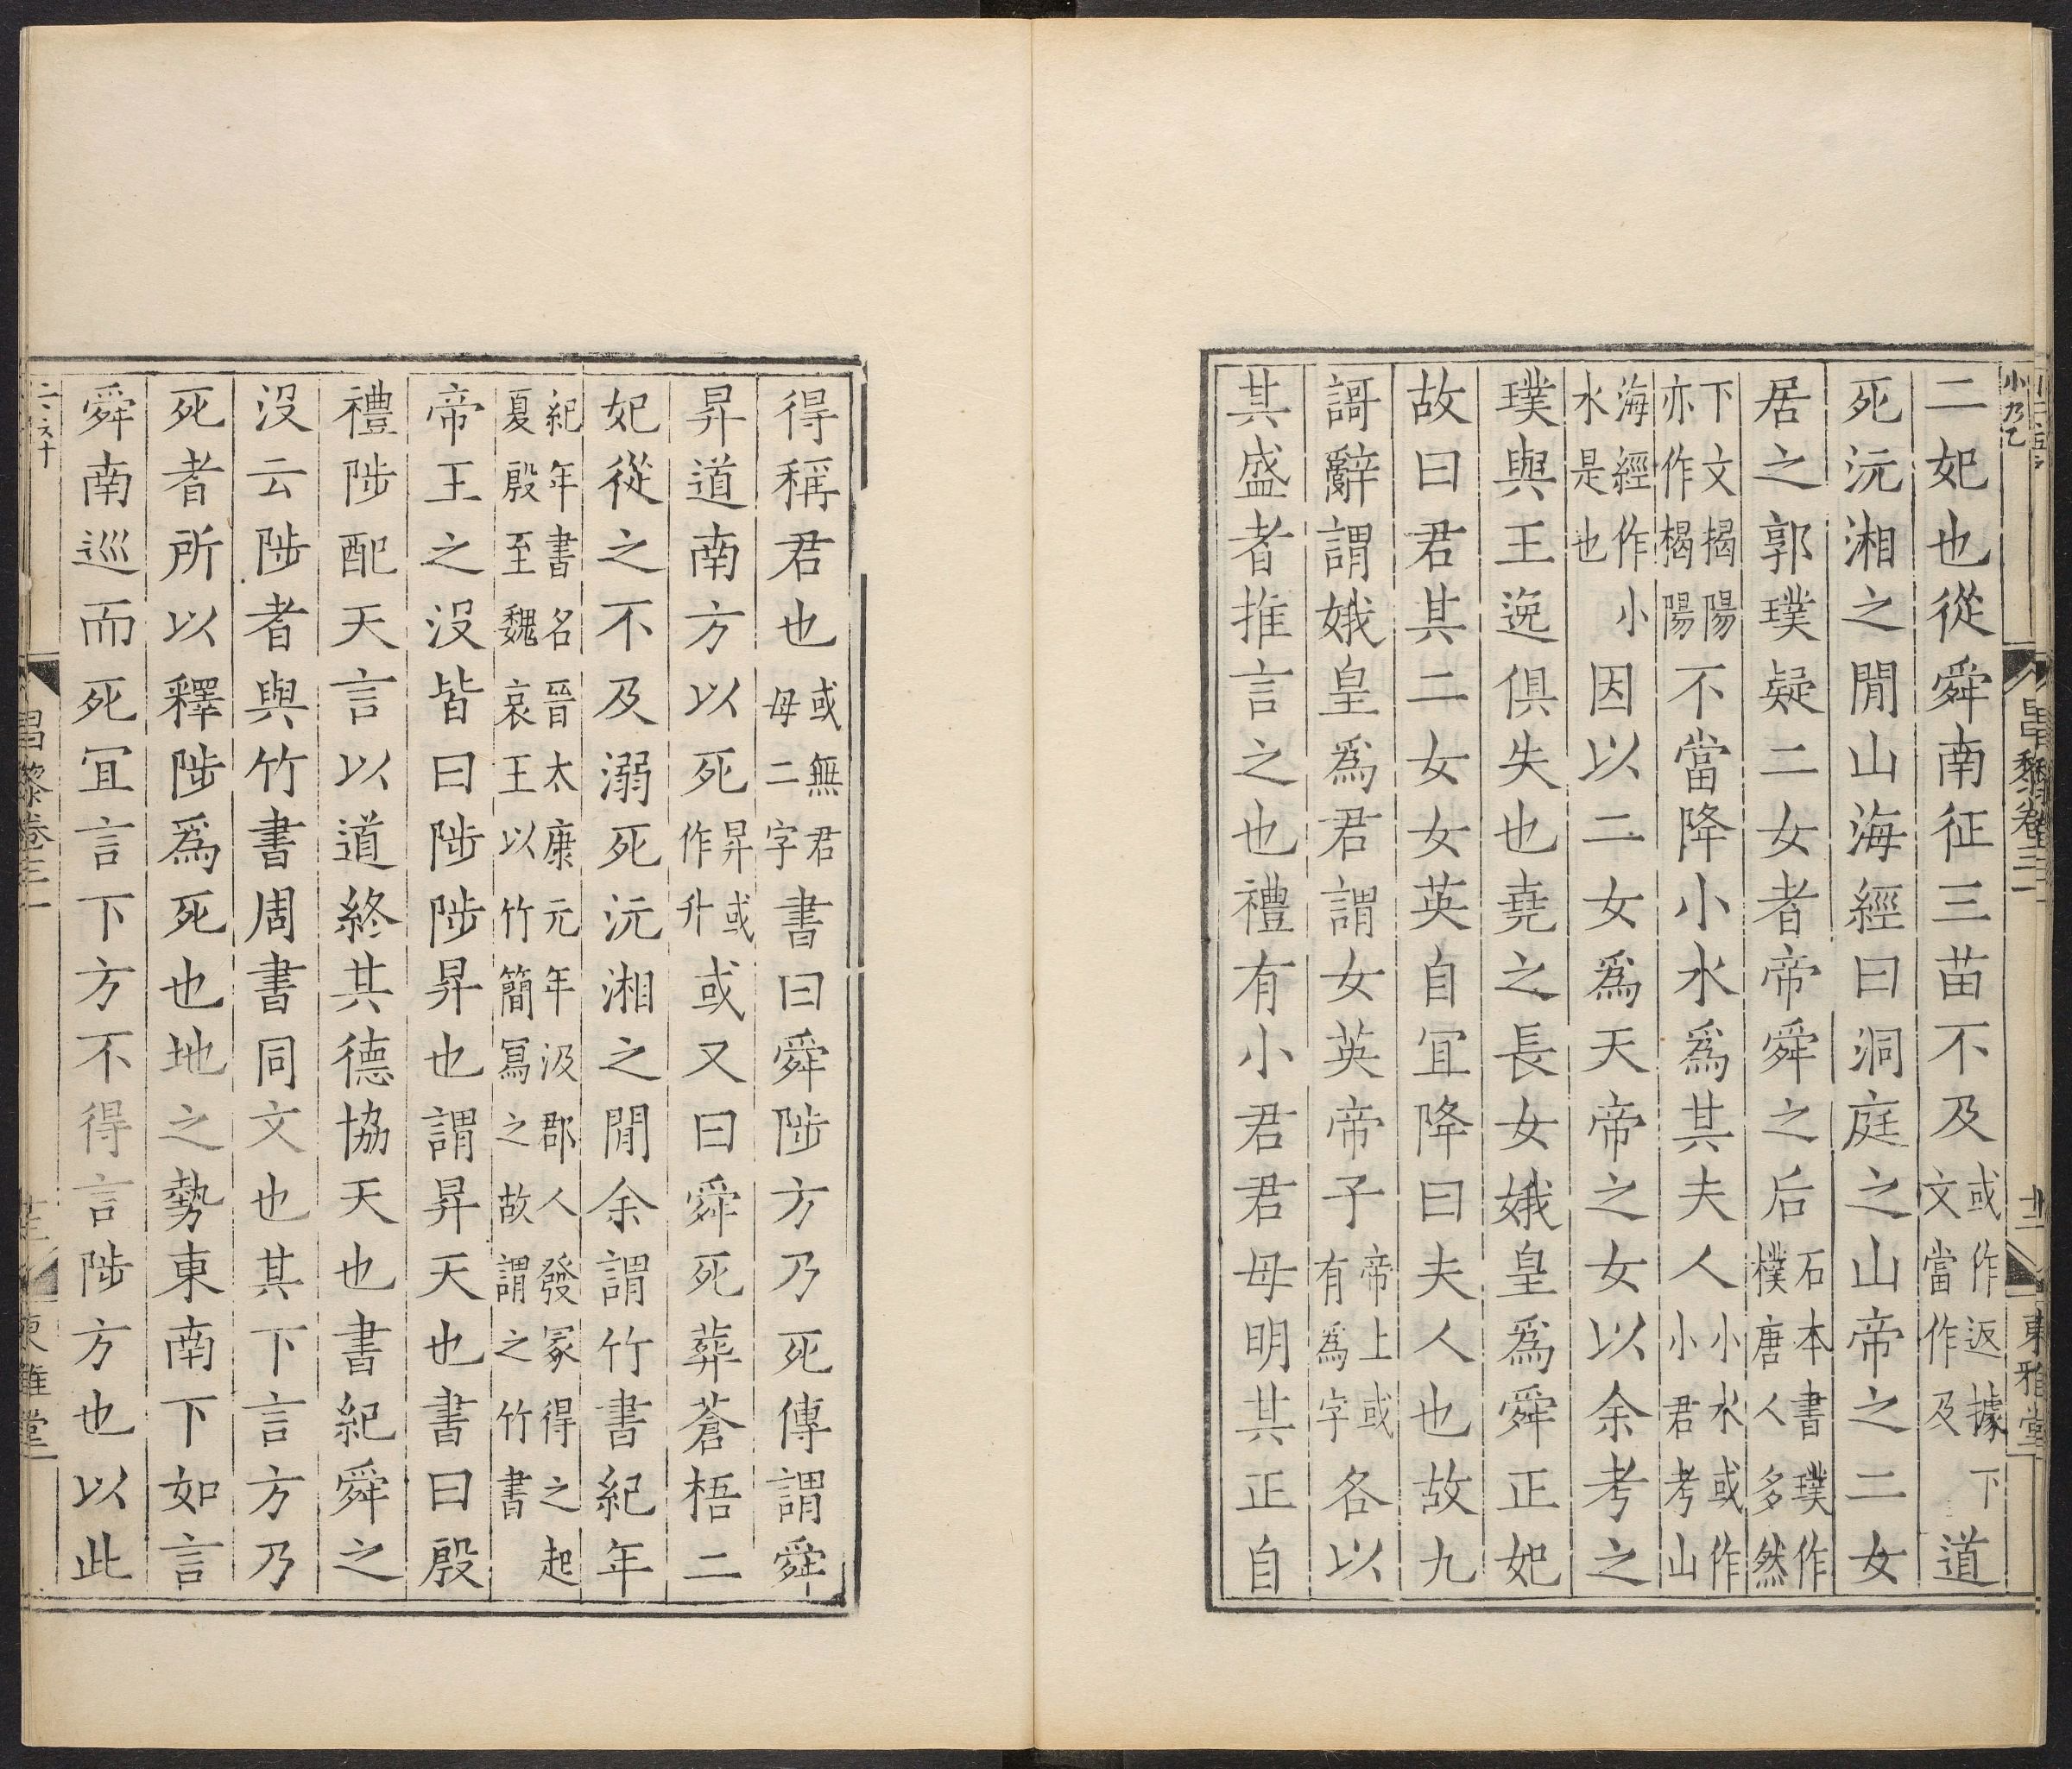 二妃也從舜南征三苗不及或作返據下文當作及道
死沅湘之閒山海經曰洞庭之山帝之二女
居之郭璞疑二女者帝舜之后石本書璞作樸唐人多然
下文揭陽亦作楬陽不當降小水爲其夫人小水或作小君考山
海經作小水是也因以二女爲天帝之女以余考之
璞與王逸俱失也堯之長女娥皇爲舜正妃
故曰君其二女女英自宜降曰夫人也故九
謌辭謂娥皇爲君謂女英帝子帝上或有爲字各以
其盛者推言之也禮有小君君母明其正自
昌黎卷三一
東雅堂
得稱君也或無君母二字書曰舜陟方乃死傳謂舜
昇道南方以死昇或作升或又曰舜死葬蒼梧二
妃從之不及溺死沅湘之閒余謂竹書紀年
紀年書名晉太康元年汲郡人發冢得之起夏殷至魏哀王以竹簡冩之故謂之竹書
帝王之沒皆曰陟陟昇也謂昇天也書曰殷
禮陟配天言以道終其德協天也書紀舜之
沒云陟者與竹書周書同文也其下言方乃
死者所以釋陟爲死也地之勢東南下如言
舜南巡而死宜言下方不得言陟方也以此
昌黎卷三一
東雅堂